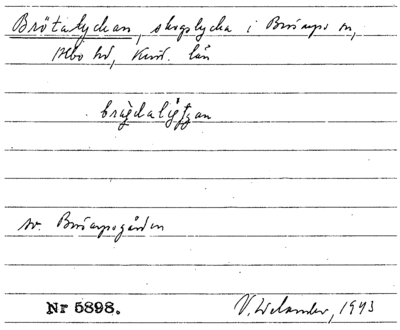 Brötalyckan, skogslycka i Brnarps sn,
Albo hd, Krist. län
brǫ̀daligʒan
sv. Brnarpsgården
Nr 5898. V. Welander, 1943